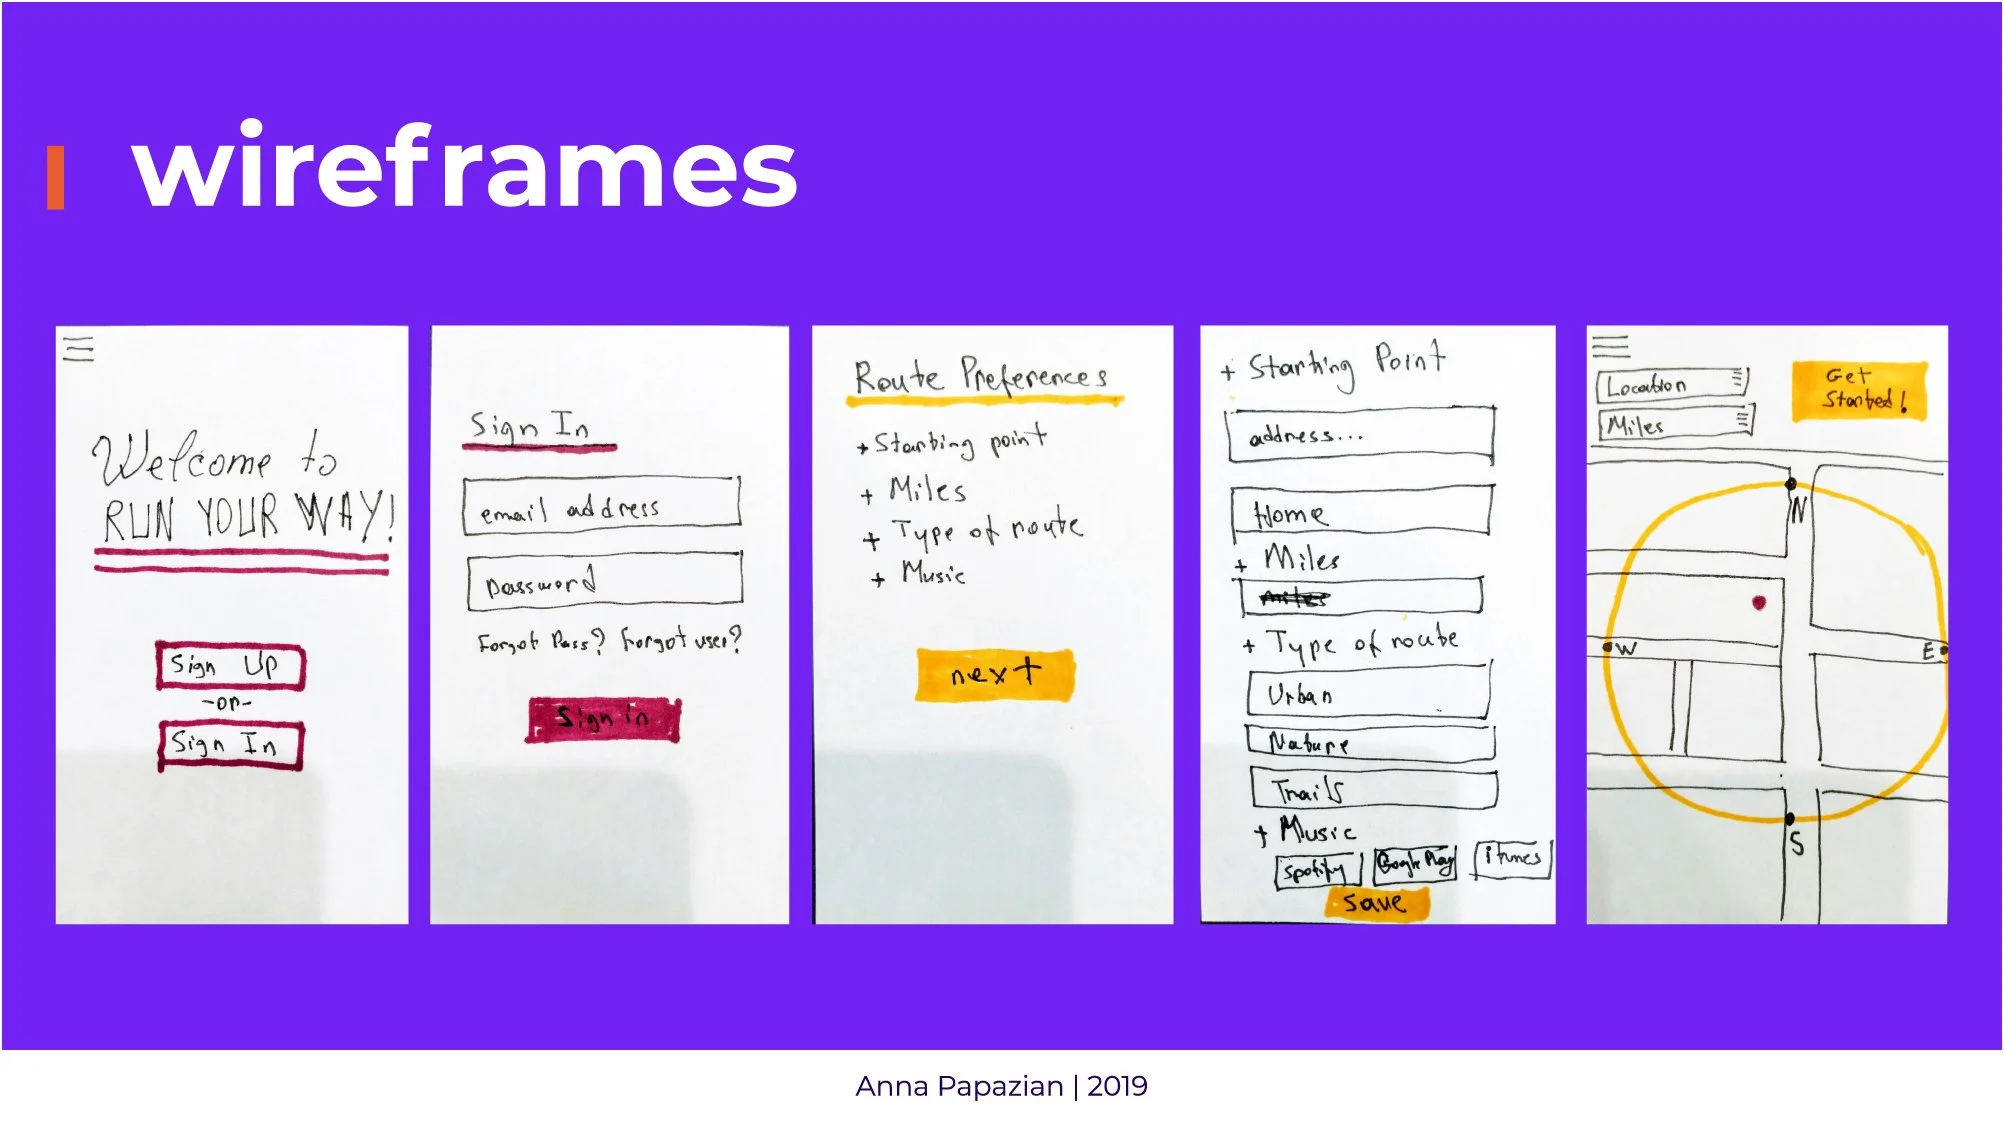 wireframes
Welcome to
RUN YOUR WAY!
Sign Up
-or-
Sign In
Sign In
email address
password
Forgot Pass? Forgot user?
Sign in
Route Preferences
+ Starting point
+ Miles
+ Type of route
+ Music
next
+ Starting Point
address...
Home
+ Miles
miles
+ Type of route
Urban
Nature
Trails
+ Music
Spotify Google Play iTunes
save
Location
Miles
Get
Started!
N
W
E
S
Anna Papazian | 2019